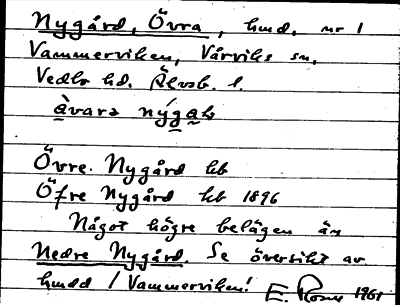 Nygård, Övra, hmd. nr 1
Vammerviken, Vårviks sn.
Vedbo hd. Älvsb. l.
àvara nýgaḷ
Övre Nygård kb
Öfre Nygård kb 1896
Något högre belägen än
Nedre Nygård. Se översikt av
hmdd i Vammerviken!
E. Rosell 1961